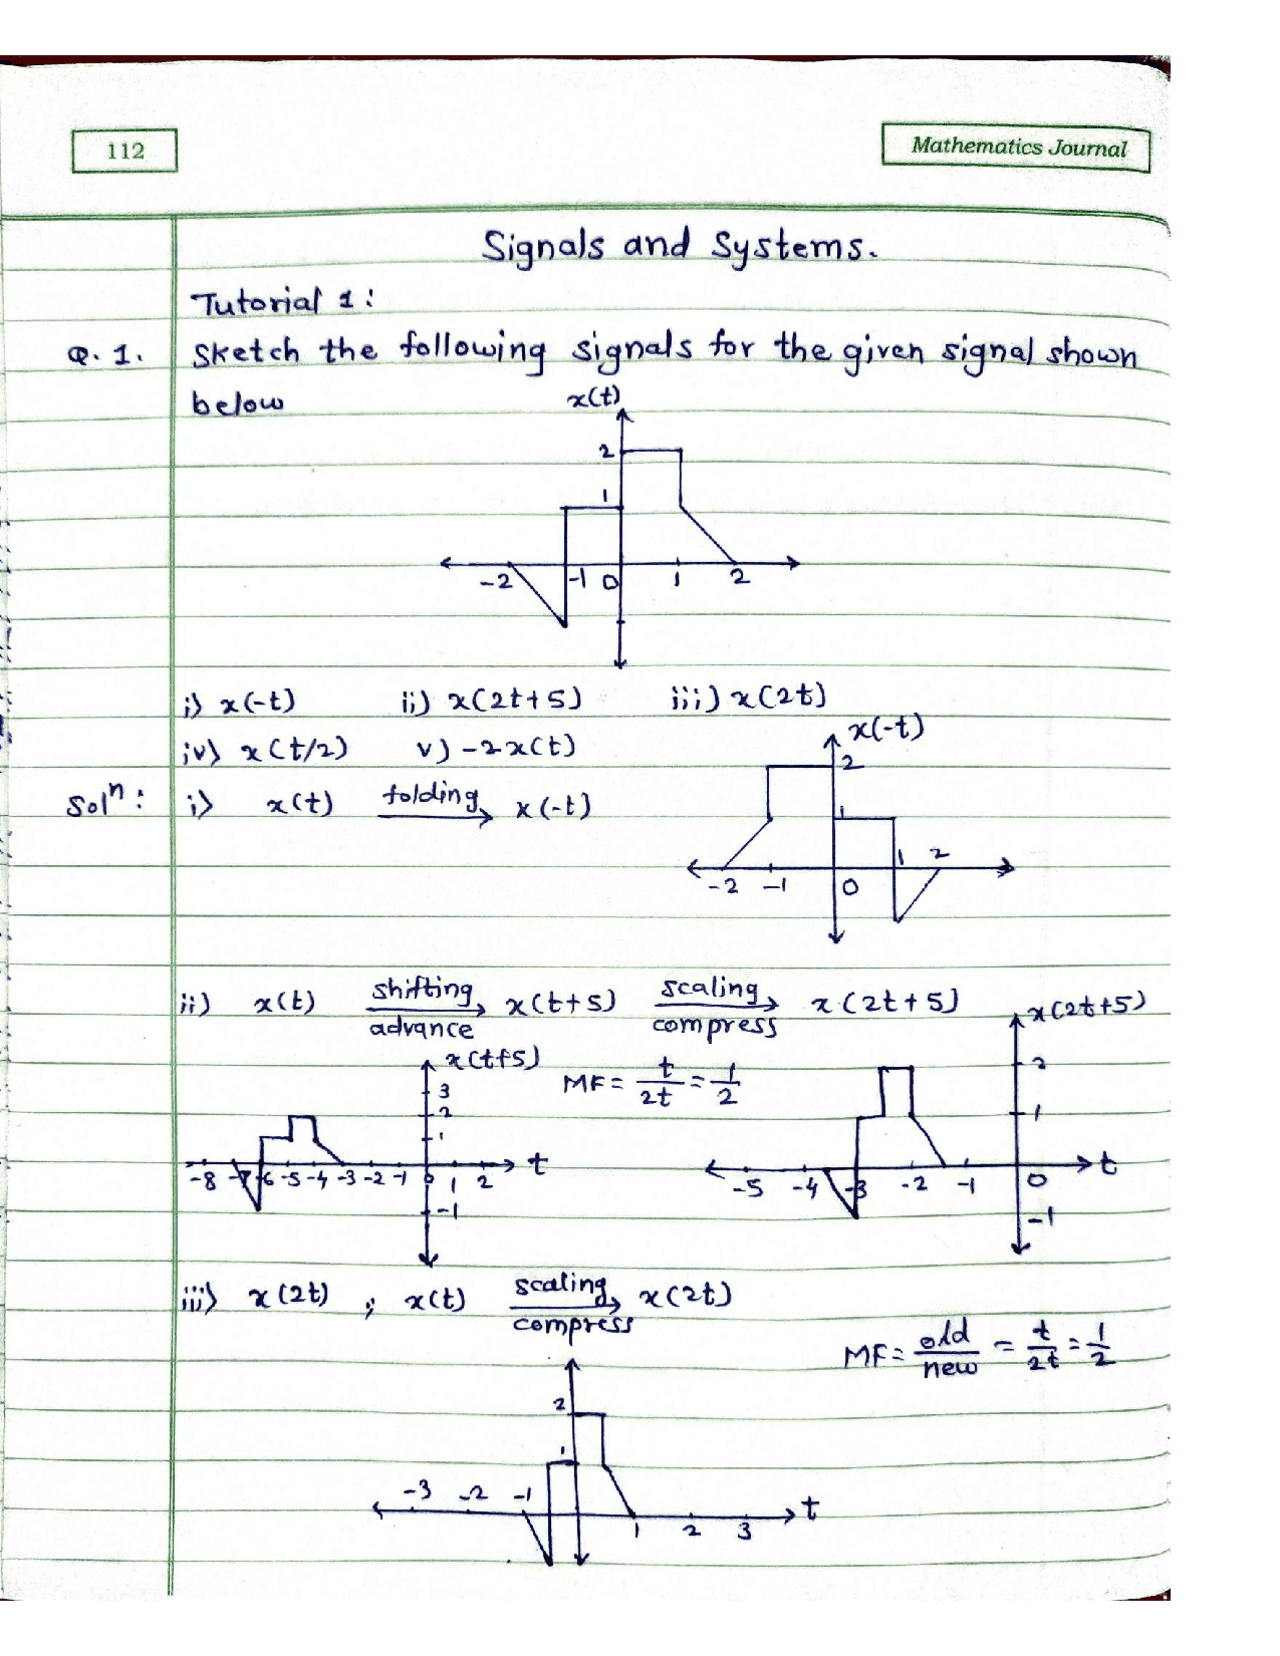 112
Mathematics Journal
Signals and Systems.
Tutorial 1:
Q.1. Sketch the following signals for the given signal shown
below
x(t)
2
1
-2 -1 0 1 2
i) x(-t) ii) x(2t+5) iii) x(2t)
iv) x(t/2) v) -2x(t)
x(-t)
2
Solⁿ: i) x(t) folding x(-t)
1
1 2
-2 -1 0
ii) x(t) shifting advance x(t+5) scaling compress x(2t+5)
x(2t+5)
x(t+5)
MF = t/2t = 1/2
3
2
1
-8 -7 -6 -5 -4 -3 -2 -1 0 1 2 t
-1
2
1
-5 -4 -3 -2 -1 0 t
-1
iii) x(2t) ; x(t) scaling compress x(2t)
MF = old/new = t/2t = 1/2
2
1
-3 -2 -1 1 2 3 t